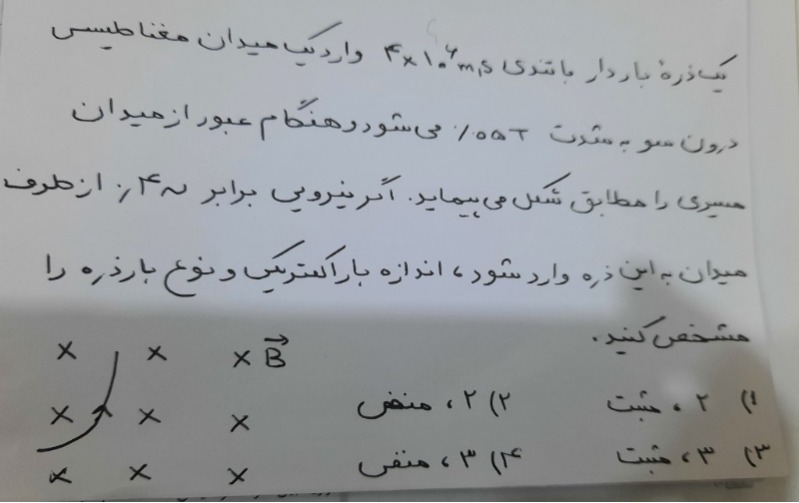 یک ذرهٔ باردار با تندی ۴×۱۰^۶ m/s وارد یک میدان مغناطیسی
درون سو به شدت ۰/۰۵T می‌شود و هنگام عبور از میدان
مسیری را مطابق شکل می‌پیماید. اگر نیرویی برابر ۰/۴N از طرف
میدان به این ذره وارد شود، اندازه بار الکتریکی و نوع بار ذره را
مشخص کنید.
× × × B
۱) ۲ ، مثبت ۲) ۲ ، منفی
× × ×
۳) ۳ ، مثبت ۴) ۳ ، منفی
× × ×